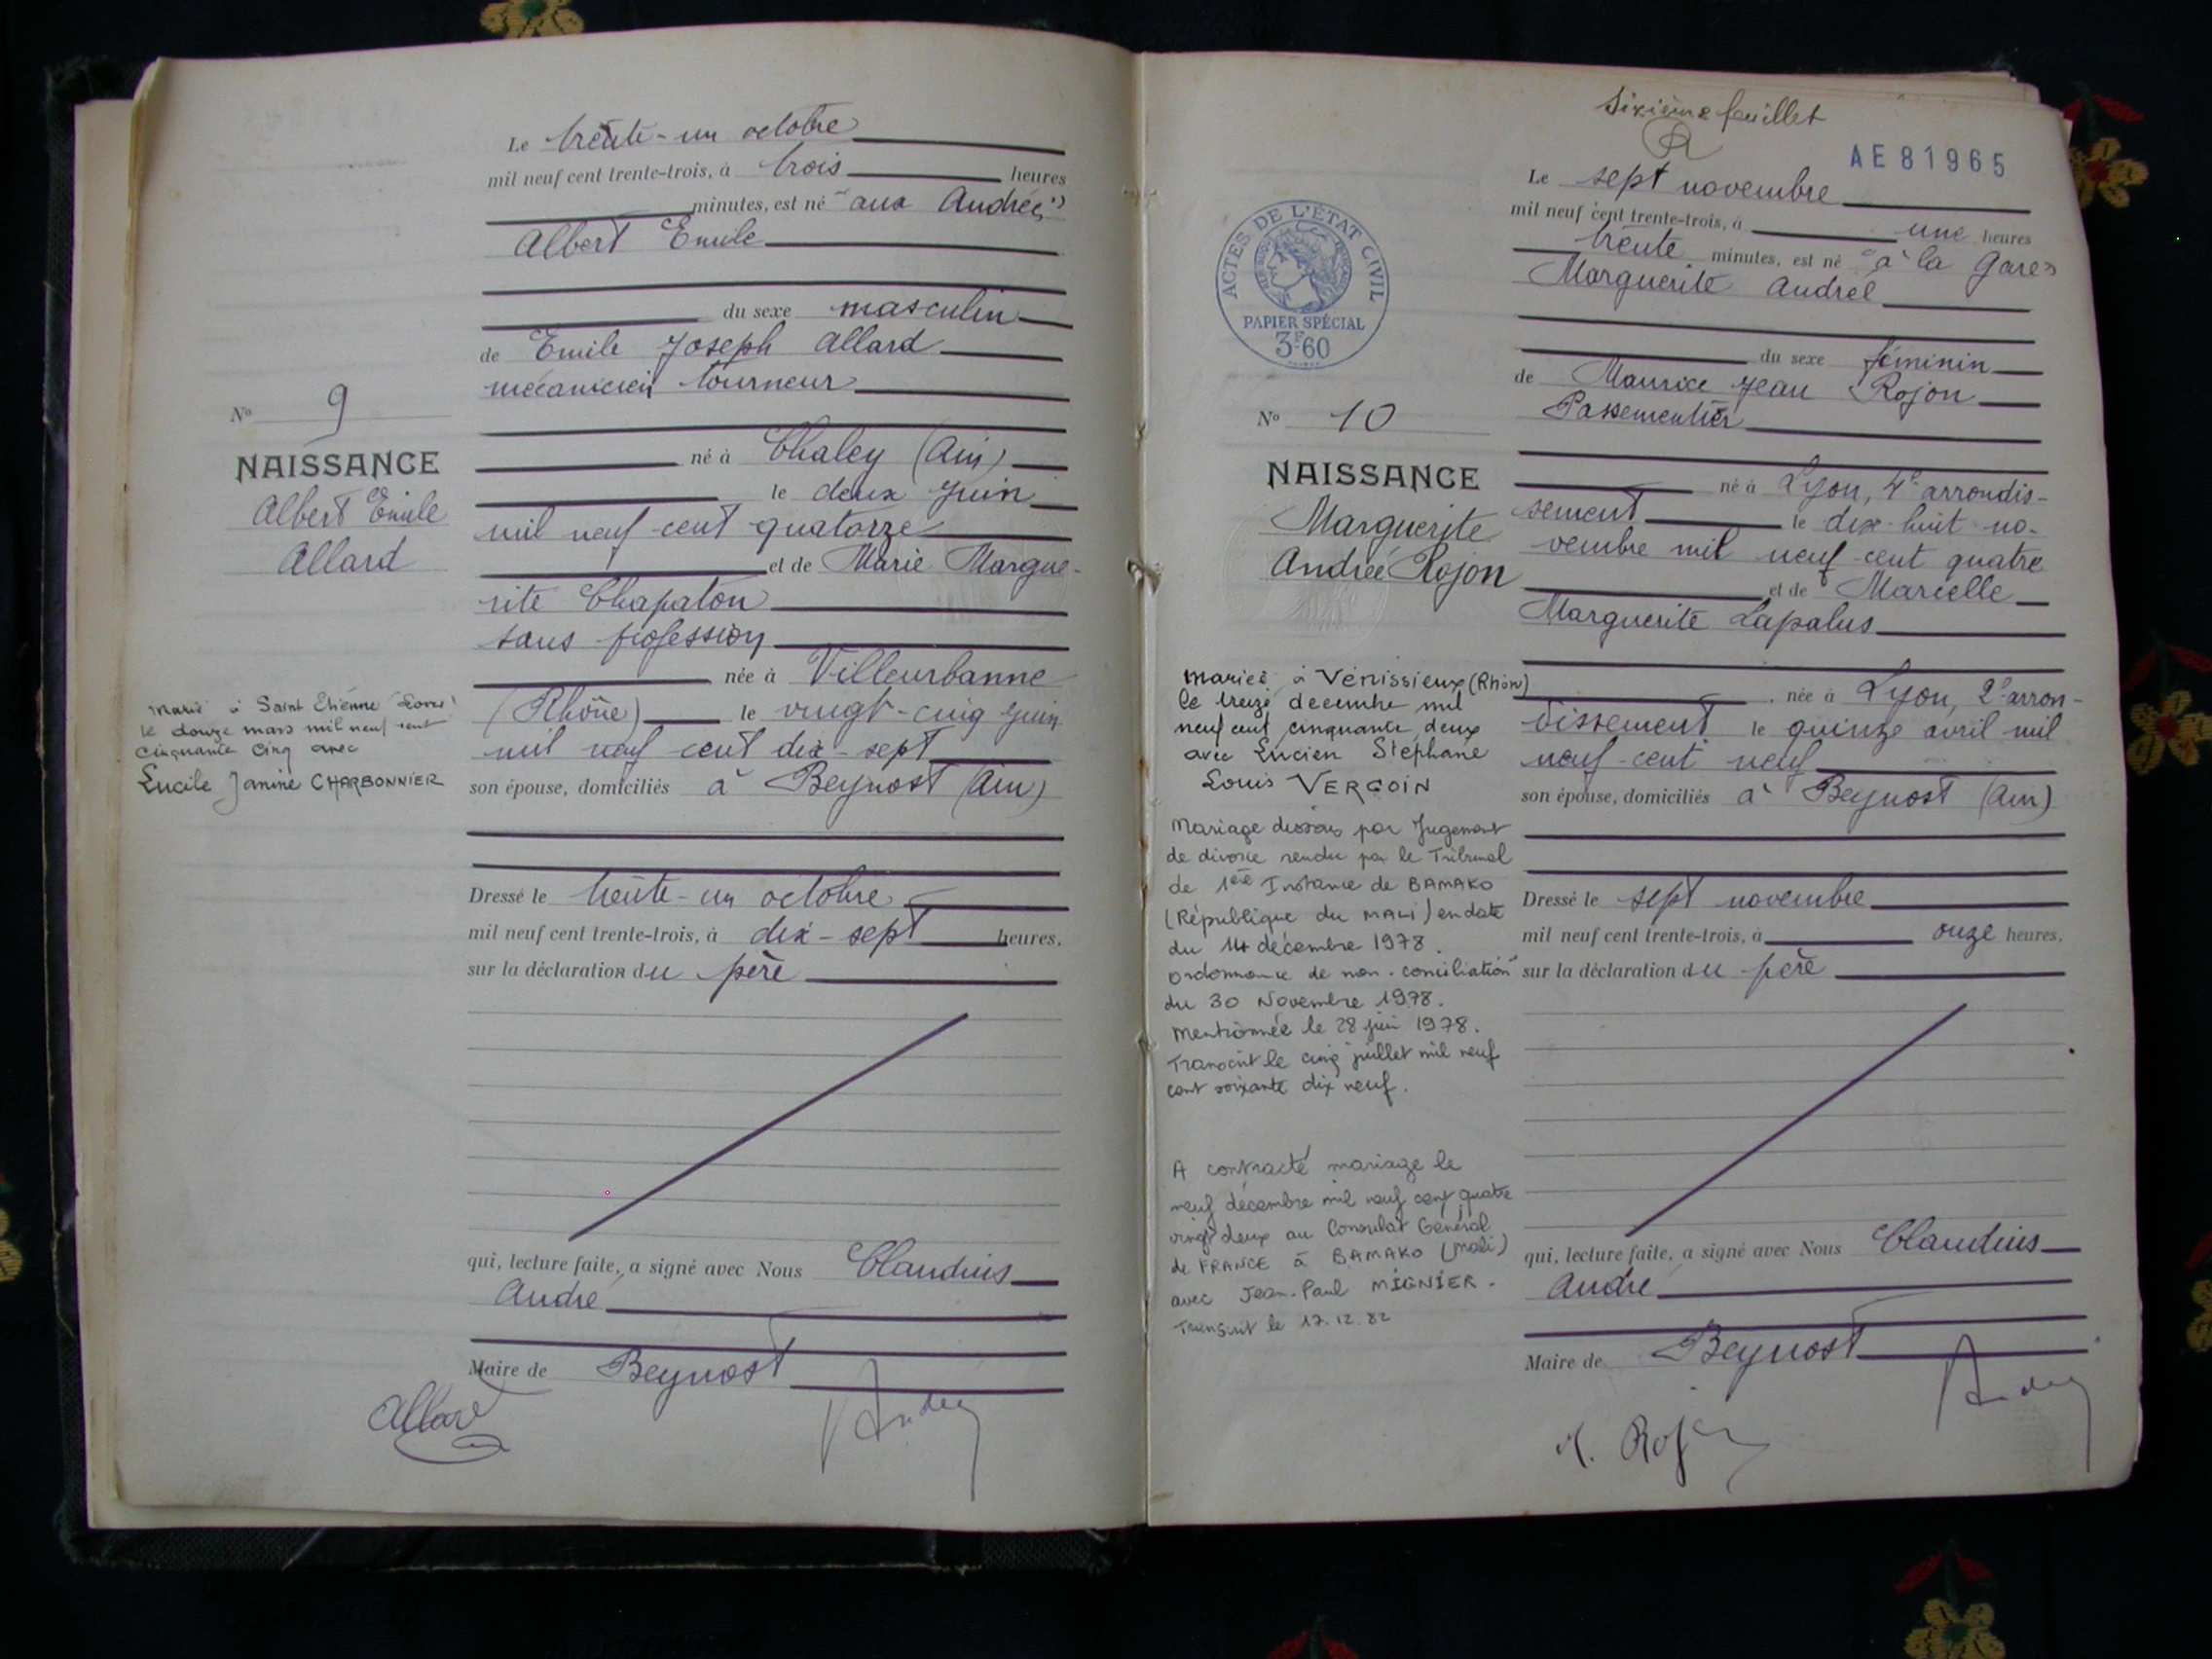 Le trente-un octobre
mil neuf cent trente-trois, à trois heures
minutes, est né "aux Andrés"
Albert Emile
du sexe masculin
de Emile Joseph Allard
mécanicien tourneur
né à Chaley (Ain)
le deux Juin
mil neuf cent quatorze
et de Marie Margue-
rite Chapaton
sans profession
née à Villeurbanne
(Rhône) le vingt-cinq Juin
mil neuf cent dix-sept
son épouse, domiciliés à Beynost (Ain)
Dressé le trente-un octobre
mil neuf cent trente-trois, à dix-sept heures,
sur la déclaration du père
qui, lecture faite, a signé avec Nous Claudius
André
Maire de Beynost
Allard
André
No 9
NAISSANCE
Albert Emile
Allard
Marié à Saint Etienne (Loire)
le douze mars mil neuf cent
cinquante cinq avec
Lucile Janine CHARBONNIER
Sixième feuillet
AE81965
ACTES DE L'ÉTAT CIVIL
PAPIER SPÉCIAL
3F60
No 10
NAISSANCE
Marguerite
Andrée Rojon
Mariée à Vénissieux (Rhône)
le treize décembre mil
neuf cent cinquante deux
avec Lucien Stéphane
Louis VERGOIN
Mariage dissous par Jugement
de divorce rendu par le Tribunal
de 1ère Instance de BAMAKO
(République du MALI) en date
du 14 décembre 1978.
ordonnance de non-conciliation
du 30 Novembre 1978.
Mentionnée le 28 juin 1978.
Transcrit le cinq juillet mil neuf
cent soixante dix neuf.
A contracté mariage le
neuf décembre mil neuf cent quatre
vingt deux au Consulat Général
de FRANCE à BAMAKO (Mali)
avec Jean-Paul MIGNIER.
Transcrit le 17.12.82
Le sept novembre
mil neuf cent trente-trois, à une heures
trente minutes, est né "à la Gare"
Marguerite Andrée
du sexe féminin
de Maurice Jean Rojon
Passementier
né à Lyon, 4e arrondis-
sement le dix-huit no-
vembre mil neuf cent quatre
et de Marcelle
Marguerite Lapalus
née à Lyon, 2e arron-
dissement le quinze avril mil
neuf-cent neuf
son épouse, domiciliés à Beynost (Ain)
Dressé le sept novembre
mil neuf cent trente-trois, à onze heures,
sur la déclaration du père
qui, lecture faite, a signé avec Nous Claudius
André
Maire de Beynost
André
M. Rojon